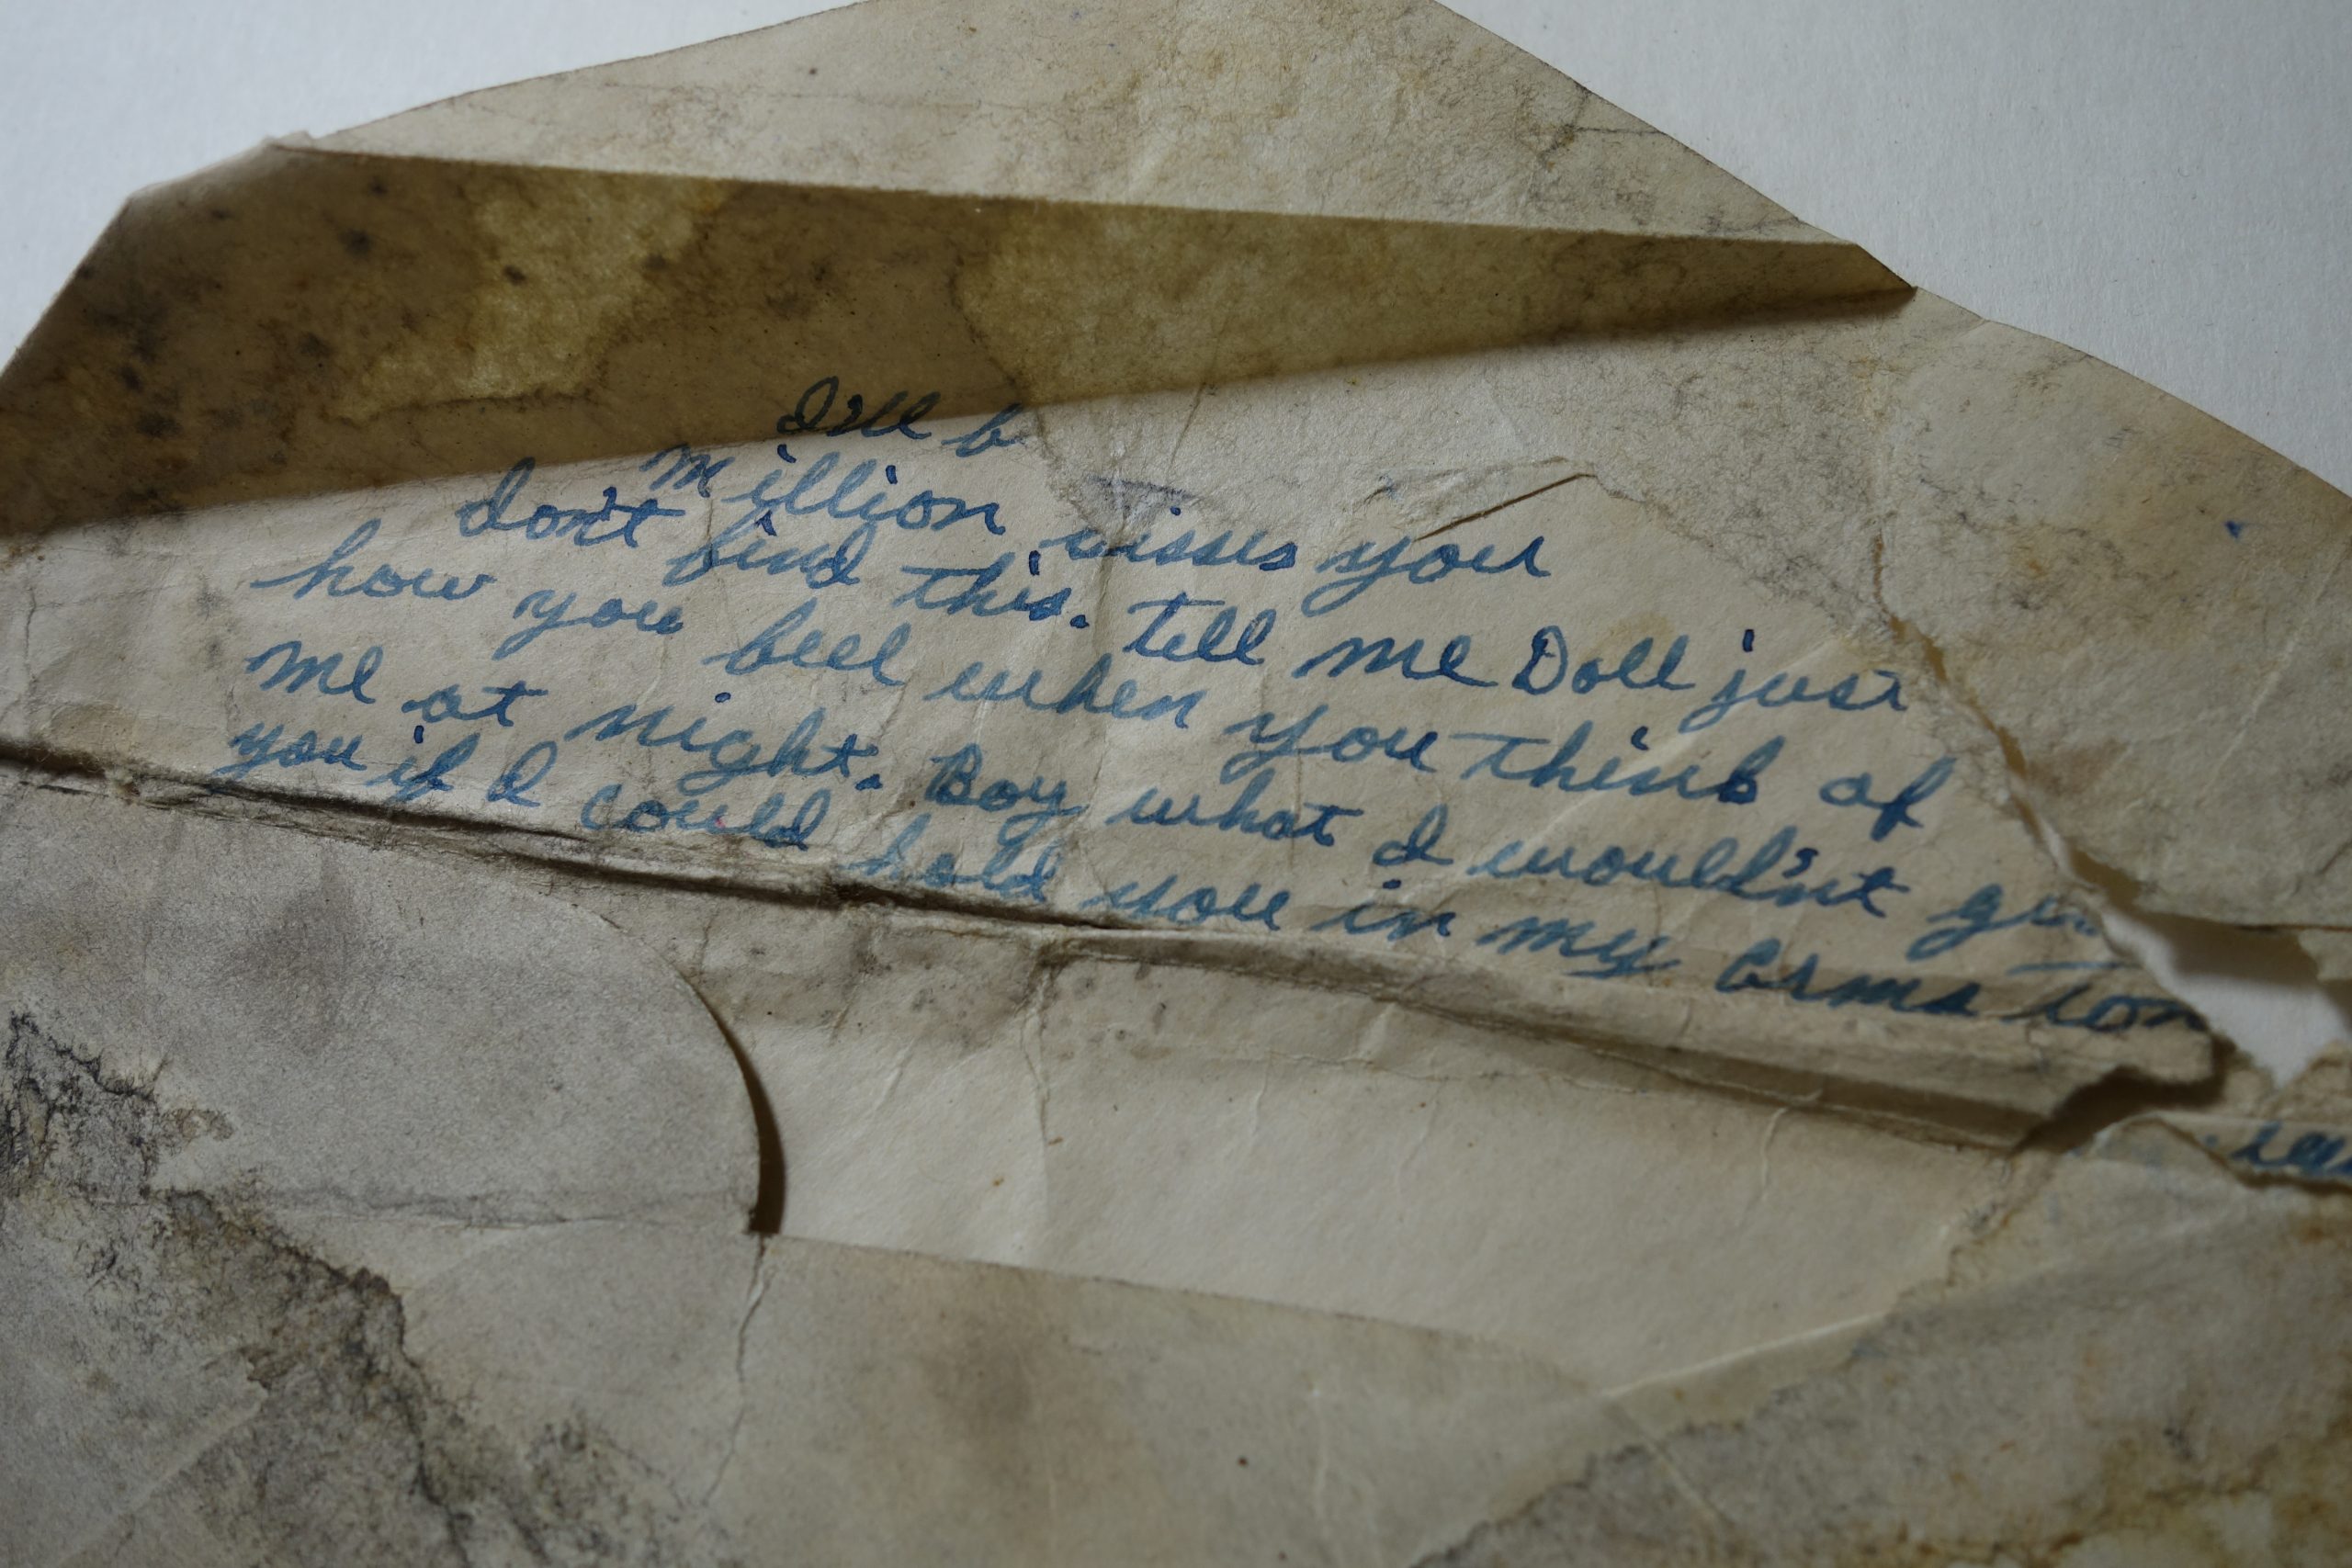 I'll b
million kisses you
don't find this. Tell me Doll just
how you feel when you think of
me at night. Boy what I would'nt
you if I could hold you in my arms ton